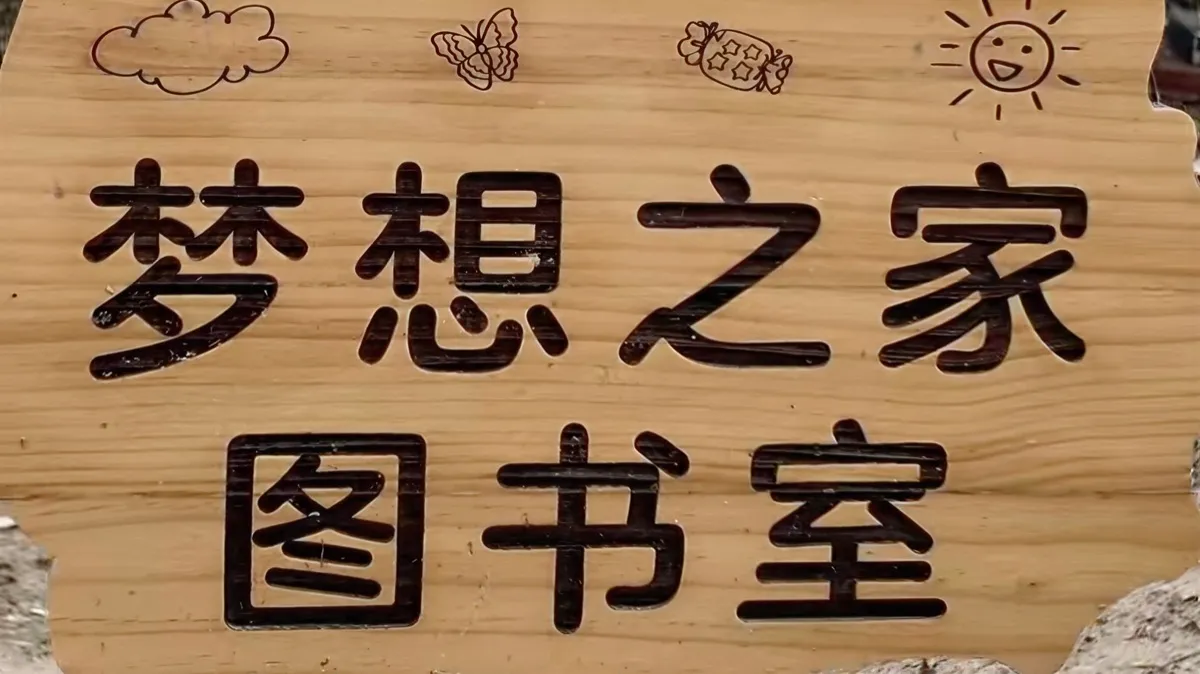 梦想之家
图书室